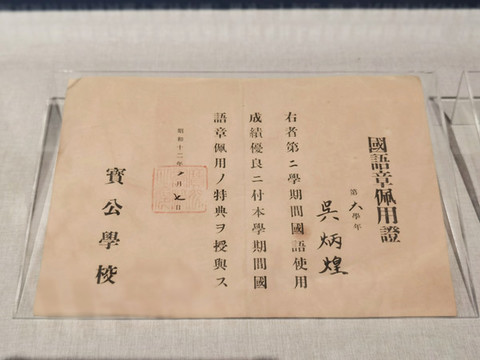 國語章佩用證
第六學年
吳炳煌
右者第二學期間國語使用
成績優良ニ付本學期間國
語章佩用ノ特典ヲ授與ス
昭和十二年 月七日
寶公學校